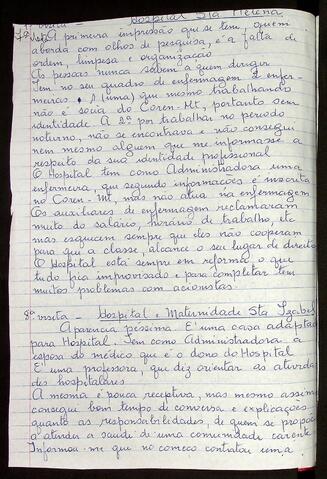 7ª visita - Hospital Sta Helena
A primeira impressão que se tem, quem
aborda com olhos de pesquisa, é a falta de
ordem, limpesa e organização
As pessoas nunca sabem a quem dirigir
Tem no seu quadro de enfermagem 2 enfer-
meiras. A 1ª (uma) que mesmo trabalhando
não é socia do Coren-Mt, portanto sem
identidade. A 2ª por trabalhar no periodo
noturno, não se encontrava e não consegui
nem mesmo alguem que me informasse a
respeito da sua identidade profissional.
O Hospital tem como Administradora uma
enfermeira, que segundo informações é inscrita
no Coren-Mt, mas não atua na enfermagem
Os auxiliares de enfermagem reclamaram
muito do salário, horário de trabalho, etc
mas esquecem sempre que eles não cooperam
para que a classe, alcance o seu lugar de direito
O Hospital está sempre em reforma, o que
tudo fica improvisado e para completar tem
muitos problemas com acionistas.
8ª visita - Hospital e Maternidade Sta Izabel
Aparencia péssima. E' uma casa adaptada
para Hospital. Tem como Administradora a
esposa do médico que é o dono do Hospital
E' uma professora, que diz orientar as atividades
hospitalares
A mesma é pouca receptiva, mas mesmo assim
consegui bom tempo de conversa e explicações
quanto as responsabilidades, de quem se propõe
a atender a saude de uma comunidade carente
Informou-me que no começo contratou uma